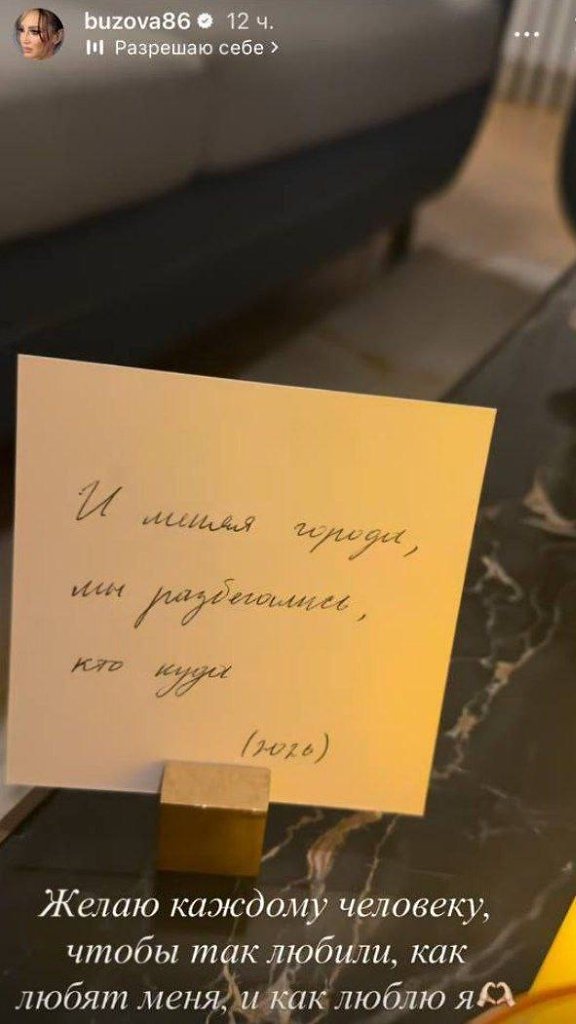 buzova86 12 ч.
Разрешаю себе >
И меняя города,
мы разбегались,
кто куда
Желаю каждому человеку,
чтобы так любили, как
любят меня, и как люблю я🫶🏻